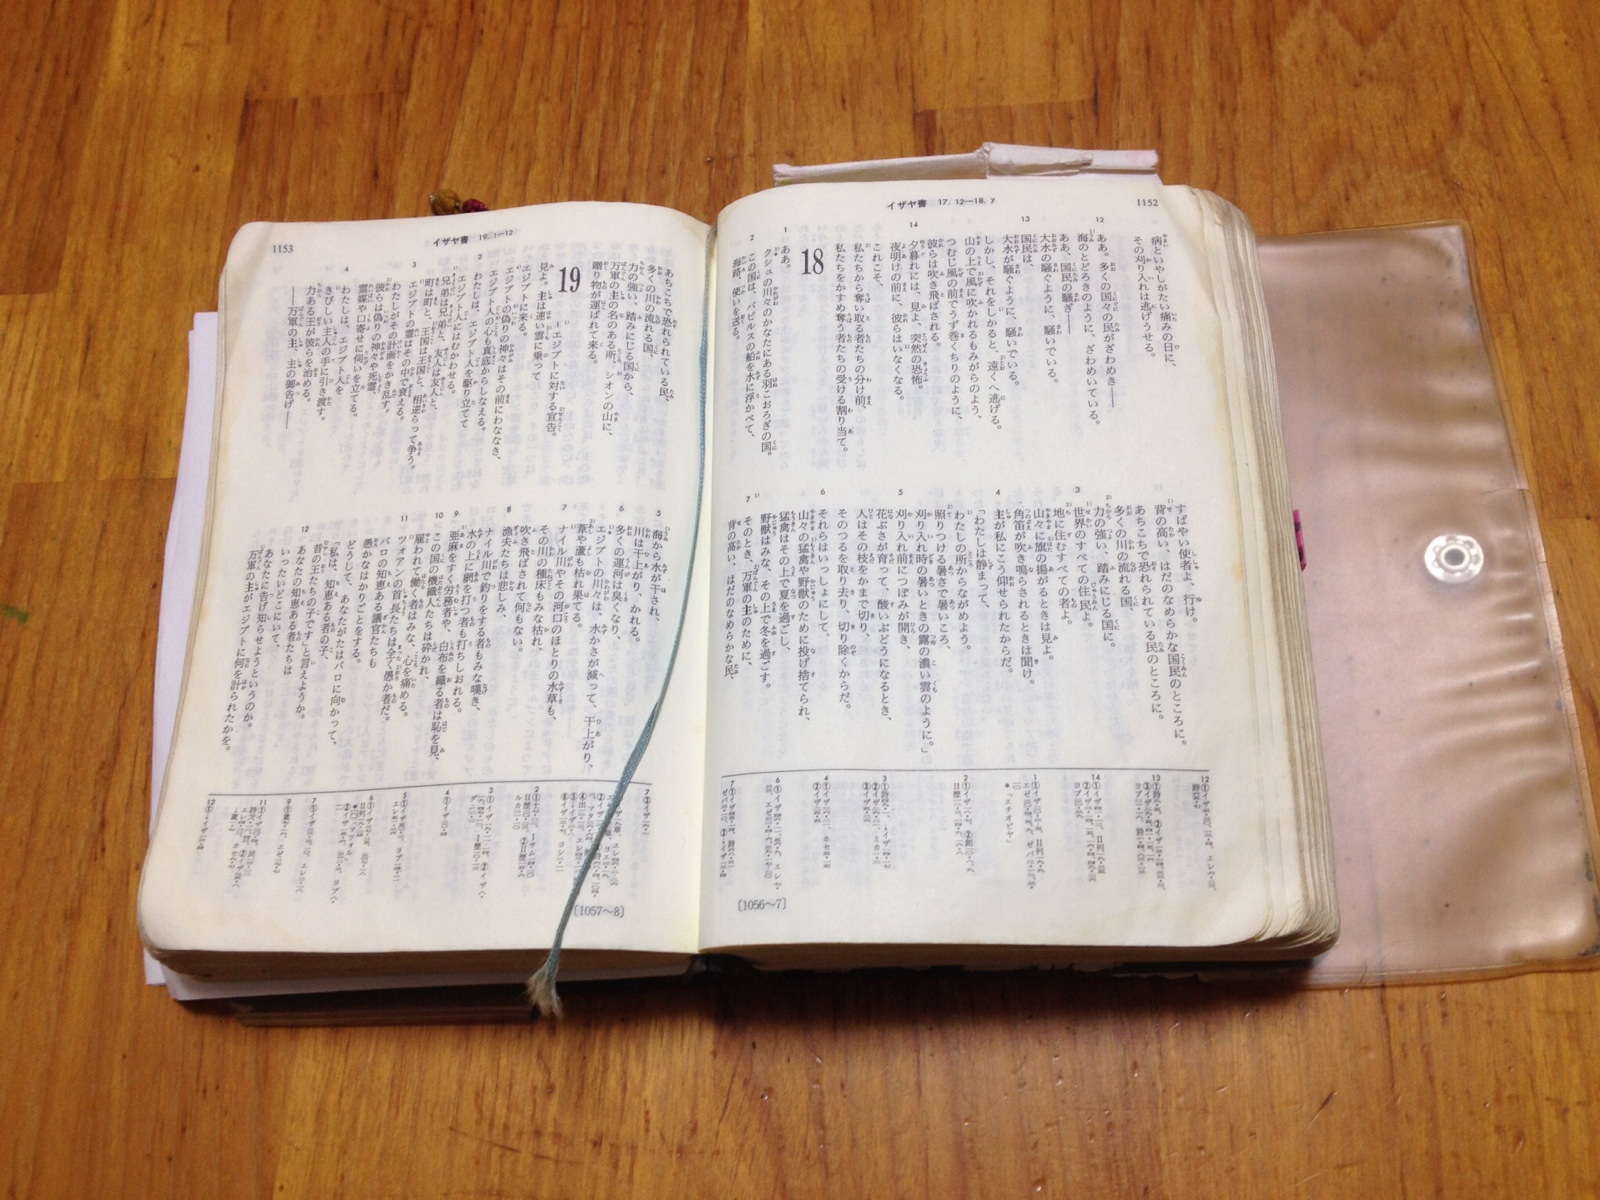 イザヤ書 17. 12—18. 7
1152
病といやしがたい痛みの日に、
その刈り入れは逃げうせる。
12 ああ。多くの国々の民がざわめき——
海のとどろきのように、ざわめいている。
ああ、国民の騒ぎ——
大水の騒ぐように、騒いでいる。
13 国民は、
大水が騒ぐように、騒いでいる。
しかし、それをしかると、遠くへ逃げる。
山の上で風に吹かれるもみがらのよう、
つむじ風の前でうず巻くちりのように、
彼らは吹き飛ばされる。
14 夕暮れには、見よ、突然の恐怖。
夜明けの前に、彼らはいなくなる。
これこそ、
私たちから奪い取る者たちの分け前、
私たちをかすめ奪う者たちの受ける割り当て。
18
1 ああ。
クシュの川々のかなたにある羽こおろぎの国。
2 この国は、パピルスの船を水に浮かべて、
海路、使いを送る。
すばやい使者よ、行け。
背の高い、はだのなめらかな国民のところに。
あちこちで恐れられている民のところに。
多くの川の流れる国、
力の強い、踏みにじる国に。
3 世界のすべての住民よ。
地に住むすべての者よ。
山々に旗の揚がるときは見よ。
角笛が吹き鳴らされるときは聞け。
4 主が私にこう仰せられたからだ。
「わたしは静まって、
わたしの所からながめよう。
照りつける暑さで暑いころ、
刈り入れ時の暑いときの露の濃い雲のように。」
5 刈り入れ前につぼみが開き、
花ぶさが育って、酸いぶどうになるとき、
人はその枝をかまで切り、
そのつるを取り去り、切り除くからだ。
6 それらはいっしょにして、
山々の猛禽や野獣のために投げ捨てられ、
猛禽はその上で夏を過ごし、
野獣はみな、その上で冬を過ごす。
7 そのとき、万軍の主のために、
背の高い、はだのなめらかな民、
＊「エチオピヤ」
〔1056〜7〕
イザヤ書 19. 1—12
1153
あちこちで恐れられている民、
多くの川の流れる国、
力の強い、踏みにじる国から、
万軍の主の名のある所、シオンの山に、
贈り物が運ばれて来る。
19
1 エジプトに対する宣告。
見よ。主は速い雲に乗って
エジプトに来る。
エジプトの偽りの神々はその前にわななき、
エジプト人の心も真底からしなえる。
2 わたしは、エジプト人を駆り立てて
エジプト人にはむかわせる。
兄弟は兄弟と、友人は友人と、
町は町と、王国は王国と、相逆らって争う。
3 エジプトの霊はその中で衰える。
わたしがその計画をかき乱す。
彼らは偽りの神々や死霊、
霊媒や口寄せに伺いを立てる。
4 わたしは、エジプト人を
きびしい主人の手に引き渡す。
力ある王が彼らを治める。
——万軍の主、主の御告げ——
5 海から水が干され、
川は干上がり、かれる。
6 多くの運河は臭くなり、
エジプトの川々は、水かさが減って、干上がり、
葦や蘆も枯れ果てる。
7 ナイル川やその河口のほとりの水草も、
その川の種床もみな枯れ、
吹き飛ばされて何もない。
8 漁夫たちは悲しみ、
ナイル川で釣りをする者もみな嘆き、
水の上に網を打つ者も打ちしおれる。
9 亜麻をすく労務者や、白布を織る者は恥を見、
10 この国の機織人たちは砕かれ、
雇われて働く者はみな、心を痛める。
11 ツォアンの首長たちは全く愚か者だ。
パロの知恵ある議官たちも
愚かなはかりごとをする。
どうして、あなたがたはパロに向かって、
「私は、知恵ある者の子、
昔の王たちの子です」と言えようか。
12 あなたの知恵ある者たちは
いったいどこにいて、
あなたに告げ知らせようというのか。
万軍の主がエジプトに何を計られたかを。
〔1057〜8〕